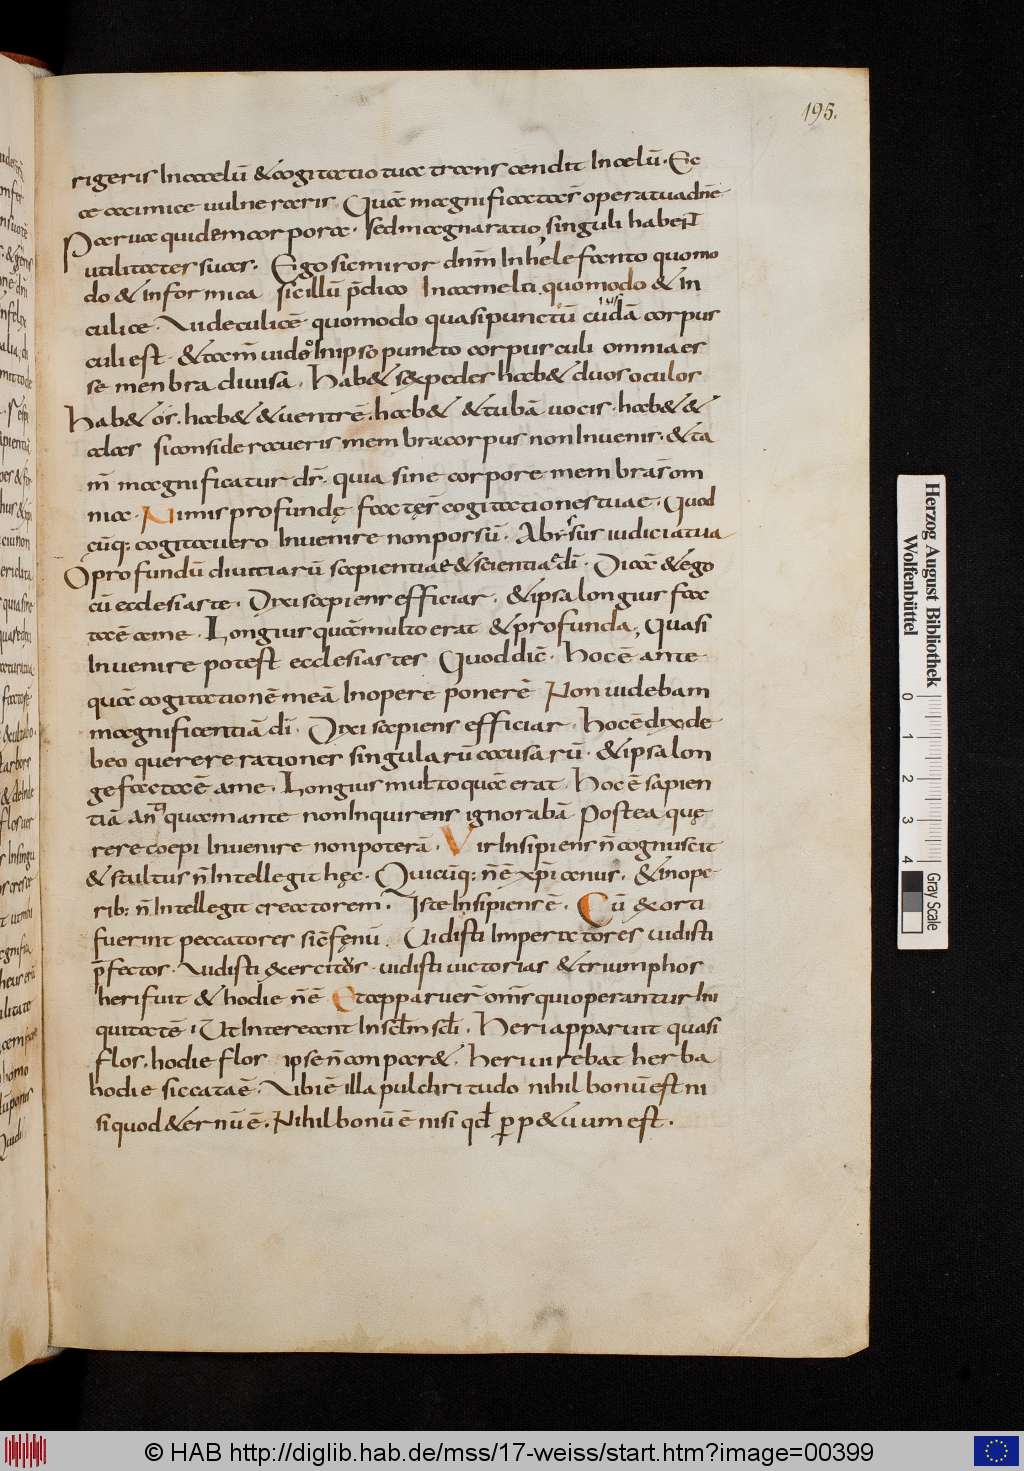 195.
rigeris In cœlū & cogitatio tua transcendit In cœlū. Ec
ce acimice uulneraris. Quā magnificata s̄ opera tua dn̄e
Parua quidem corpora. sed magna ratio, singuli habent
utilitates suas. Ego sic miror dn̄m In helefanto quomo
do & in formica sic illū p̄dico In camelo quomodo & in
culice. Uide culicē quomodo quasi punctū cuius dā corpus
culi est. & tam̄ uideo In ipso puncto corpusculi omnia es
se menbra diuisa. Hab& sex pedes hab& duos oculos
Hab& os. hab& & uentrē. hab& & tubā uocis. hab& &
alas si consideraueris membra corpus non Inuenis. & ta
m̄ magnificatur dr̄. quia sine corpore membra s̄ om
nia. Nimis profundę factę s̄ cogitationes tuae. Quod
cūq: cogitauero Inuenire non possū. Abyssus iudicia tua
O profundū diuitiarū sapientiae & scientiae dī. Dicā & ego
cū ecclesiaste. Dixi sapiens efficiar. & ipsa longius fac
ta ē a me. Longius quā multo erat & profunda, Quasi
Inuenire potest ecclesiastes Quod dic̄. Hoc ē ante
quā cogitationē meā In opere ponerē Non uidebam
magnificentiā dī. Dixi sapiens efficiar. Hoc ē dixi de
beo querere rationes singularū causarū. & ipsa lon
ge facta ē a me. Longius multo quā erat. Hoc ē sapien
tiā quam ante non Inquirens ignorabā Postea quę
rere coepi Inuenire non poterā. Vir Insipiens n̄ cognuscit
& stultus n̄ Intellegit hęc. Quicūq: n̄ ē xp̄ianus. & in ope
rib: n̄ Intellegit creatorem. Iste Insipiens ē. Cū exorti
fuerint peccatores sic̄ fęnū. Uidisti Imperatores uidisti
p̄fectos. Uidisti exercitus. uidisti uictorias & triumphos
heri fuit & hodie n̄ ē Et apparuer̄ om̄s qui operantur Ini
quitatē. Ut Intereant In sc̄lm sc̄li. Heri apparuit quasi
flos. hodie flos ipse n̄ conpar&. Heri uirebat herba
hodie siccata ē. Ubi ē illa pulchritudo nihil bonū est ni
si quod & ernū ē. Nihil bonū ē nisi qđ perp&uum est.
Herzog August Bibliothek
Wolfenbüttel
0 1 2 3 4
Gray Scale
© HAB http://diglib.hab.de/mss/17-weiss/start.htm?image=00399